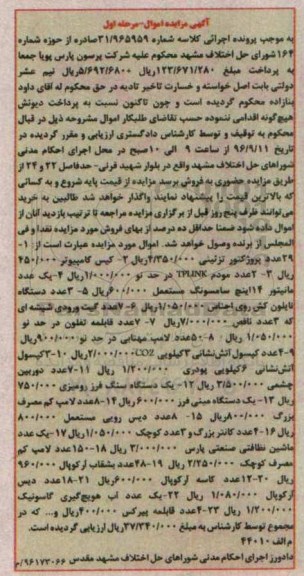 آگهی مزایده اموال-مرحله اول
به موجب پرونده اجرائی کلاسه شماره ۳۱/۹۶۵۹۵۹صادره از حوزه شماره
۱۶۴شورای حل اختلاف مشهد محکوم علیه شرکت پرسون پارس پویا جمعا
به پرداخت مبلغ ۱۲۲/۶۷۱/۲۸۰ریال +۵/۶۹۲/۶۸۰ریال نیم عشر
دولتی بابت اصل خواسته و خسارت تاخیر تادیه در حق محکوم له آقای داود
بنازاده محکوم گردیده است و چون تاکنون نسبت به پرداخت دیونش
هیچ‌گونه اقدامی ننموده حسب تقاضای طلبکار اموال مشروحه ذیل در قبال
محکوم به توقیف و توسط کارشناس دادگستری ارزیابی و مقرر گردیده در
تاریخ ۹۶/۹/۱۱ از ساعت ۹ الی ۱۰صبح در محل اجرای احکام مدنی
شوراهای حل اختلاف مشهد واقع در بلوار شهید قرنی- حدفاصل ۲۲ و ۲۴ از
طریق مزایده حضوری به فروش برسد مزایده از قیمت پایه شروع و به کسانی
که بالاترین قیمت را پیشنهاد نمایند واگذار خواهد شد طالبین به خرید
می‌توانند ظرف پنج روز قبل از برگزاری مزایده مراجعه تا ترتیب بازدید آنان از
اموال داده شود ضمنا حداقل ده درصد از بهای فروش مورد مزایده نقدا و فی
المجلس از برنده وصول خواهد شد. اموال مورد مزایده عبارت است از: ۱-
۲۹عدد پروژکتور تزئینی ۴/۳۵۰/۰۰۰ریال ۲- کیس کامپیوتر ۴۵۰/۰۰۰
ریال ۳- ۲عدد مودم TPLINK در حد نو ۱/۰۰۰/۰۰۰ریال ۴-یک عدد
مانیتور ۱۴اینچ سامسونگ مستعمل ۶۰۰/۰۰۰ریال ۵- ۳عدد دستگاه
نایلون کش روی اجناس ۱/۰۵۰/۰۰۰ریال ۶- ۷عدد گیت ورودی شیشه ای
که ۳عدد ناقص ۷/۰۰۰/۰۰۰ریال ۷- ۷عدد قابلمه تفلون در حد نو
۱/۰۵۰/۰۰۰ ریال ۸-۵۰عدد لامپ مهتابی در حد نو ۹۰۰/۰۰۰ریال
۹-۴عدد کپسول آتش‌نشانی ۳کیلویی CO2 ۲/۰۰۰/۰۰۰ریال ۱۰-۳کپسول
آتش‌نشانی ۶کیلویی پودری ۱/۲۰۰/۰۰۰ ریال ۱۱-۷عدد دوربین
چشمی ۳/۵۰۰/۰۰۰ ریال ۱۲- یک دستگاه سنگ فرز رومیزی ۷۵۰/۰۰۰
ریال ۱۳-یک دستگاه مینی فرز ۶۰۰/۰۰۰ریال ۱۴-۸عدد لامپ کم مصرف
بزرگ ۸۰۰/۰۰۰ریال ۱۵- ۸عدد دیس رویی مستعمل ۸۰۰/۰۰۰
ریال ۱۶-۴عدد کانتر بزرگ و ۳عدد کوچک ۱/۰۵۰/۰۰۰ریال ۱۷-یک عدد
ماشین نظافتی صنعتی پارس ۳/۰۰۰/۰۰۰ ریال ۱۸-۱۵۰عدد لامپ کم
مصرف کوچک ۲/۲۵۰/۰۰۰ ریال ۱۹-۴۸عدد بشقاب ارکوپال ۹۶۰/۰۰۰
ریال ۲۰-۱۲عدد کاسه ارکوپال ۶۰۰/۰۰۰ریال ۲۱-۱۸عدد دیس
ارکوپال ۱/۰۸۰/۰۰۰ ریال ۲۲-یک عدد آب هویج‌گیری گاسونیک
۱/۲۰۰/۰۰۰ ریال ۲۳-۴عدد قابلمه پیرکس ۴۰۰/۰۰۰ریال و... که در
مجموع توسط کارشناس به مبلغ ۳۷/۳۴۰/۰۰۰ریال ارزیابی گردیده است.
م الف ۴۴۰۱۰
دادورز اجرای احکام مدنی شوراهای حل اختلاف مشهد مقدس ۹۶۱۷۳۰۶۶/م